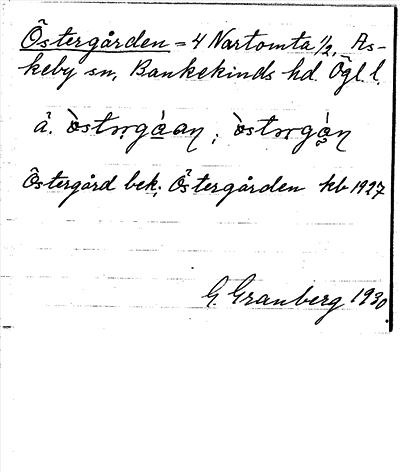 Östergården = 4 Nartomta 1/2, As-
keby sn, Bankekinds hd. Ögl. l.
å. òstɩrgá̀an ; òstɩrgá̀n
Östergård bek.; Östergården kb 1927
G. Granberg 1930